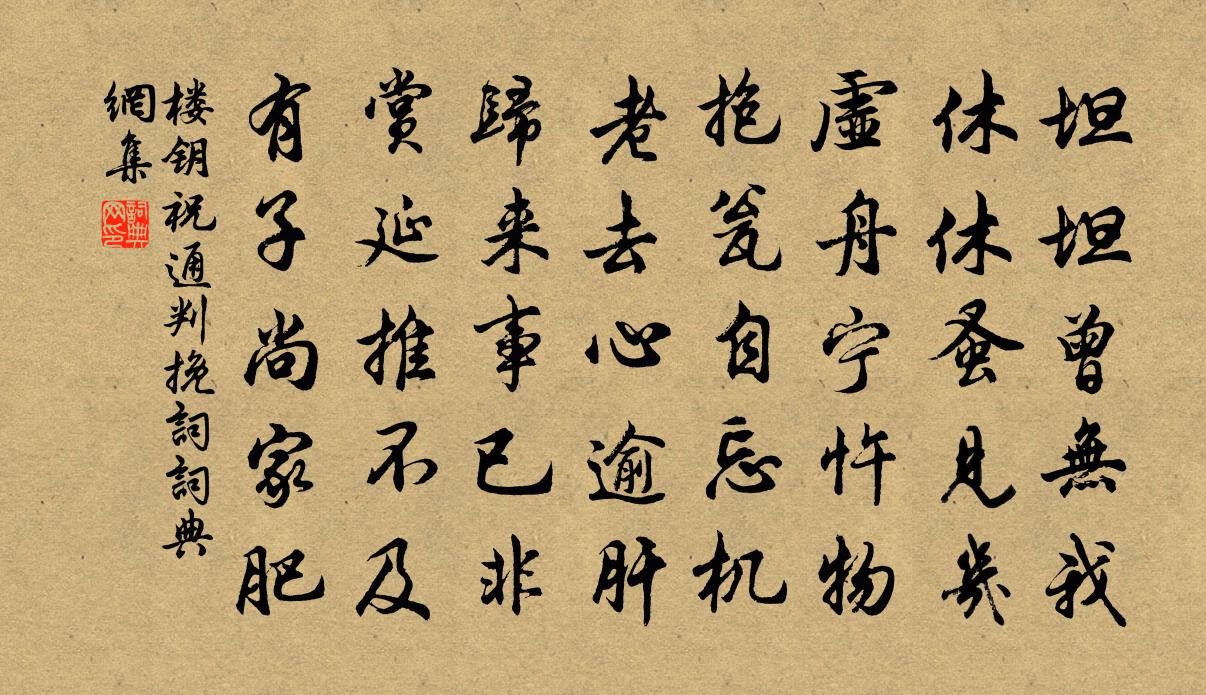 坦坦曾無我
休休蚤見幾
虛舟宁忤物
抱瓮自忘机
老去心逾肝
歸来事已非
賞延推不及
有子尚家肥
楼钥祝通判挽詞詞典
網集
詞典
网印